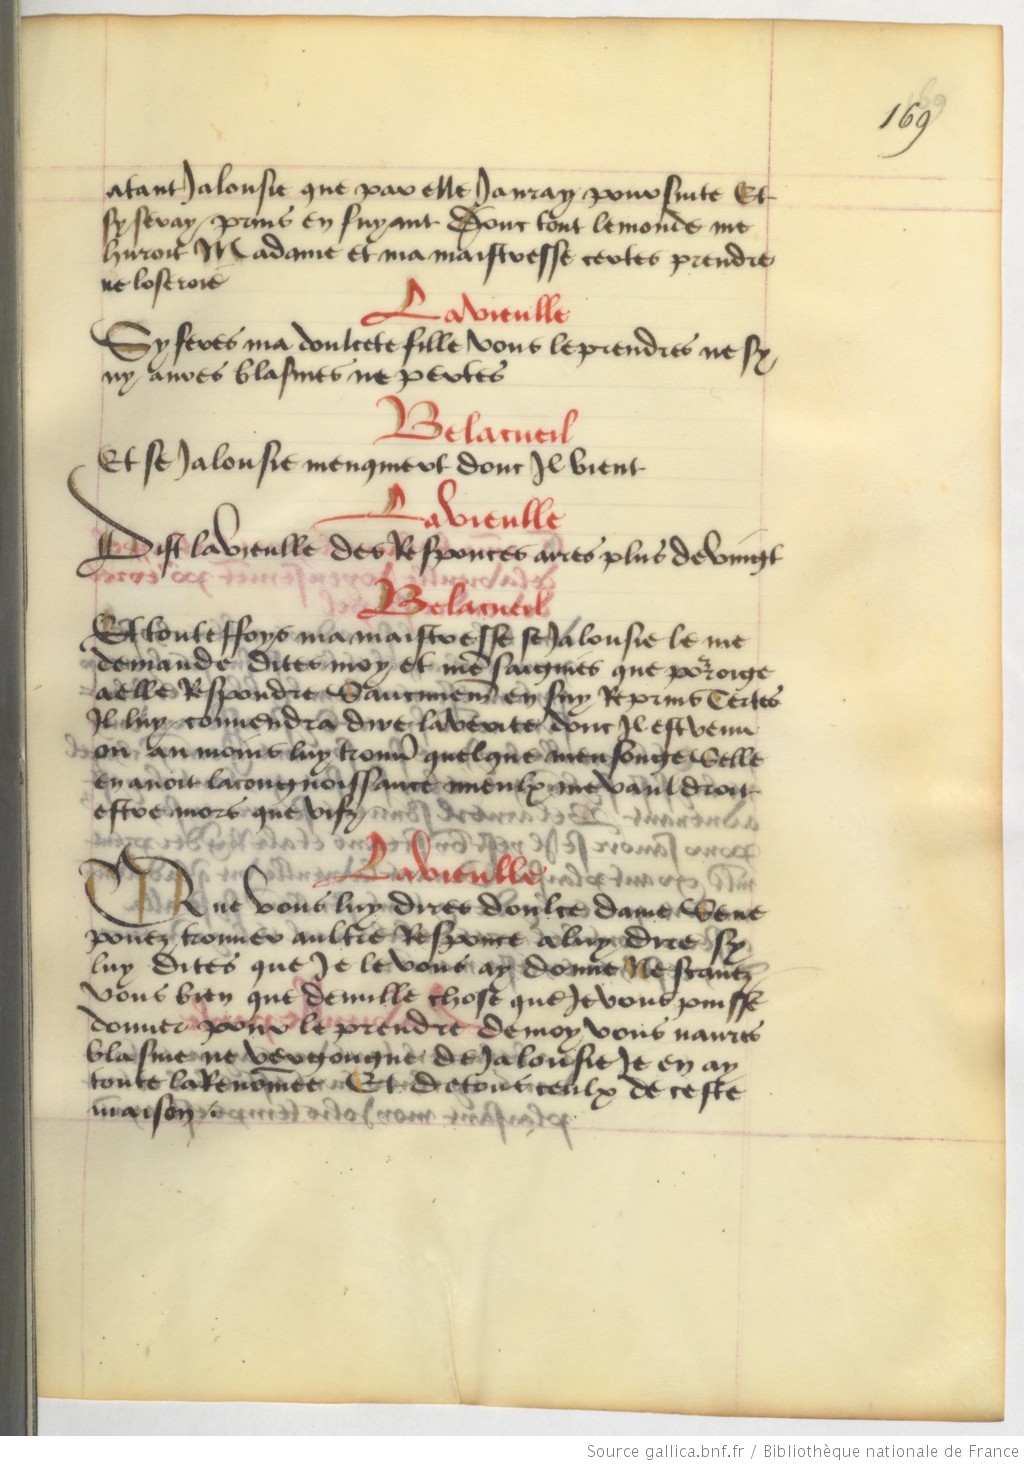 169
atant Jalousie que par elle Jauray poursuite Et
sy seray prins en fuyant Donc tout le monde me
huroit Madame et ma maistresse certes prendre
ne loseroie
La vieulle
Sy feres ma doulcete fille vous le prendres ne sy
ny aures blasmes ne pertes
Bel acueil
Et se Jalousie menquiert dont Il vient
La vieulle
Dist la vieulle des Responces ares plus de vingt
Bel acueil
Et touteffoys ma maistresse se Jalousie le me
demande dites moy et que
a elle Respondre en suy Reprins Certes
Il luy conviendra dire la verite dont Il est venu
ou au moins luy quelque mensonge Selle
en avoit la congnoissance mieulx me vauldroit
estre mors que vifz
La vieulle
Que vous luy dires doulce dame Se ne
pouez trouver aultre Responce a luy dire sy
luy dites que Je le vous ay donne Ne scavez
vous bien que de nulle chose que Je vous puisse
donner pour le prendre de moy vous naures
blasme ne vergongne de Jalousie Je en ay
toute la Renomee Et de tous ceulx de ceste
maison
Source gallica.bnf.fr / Bibliothèque nationale de France